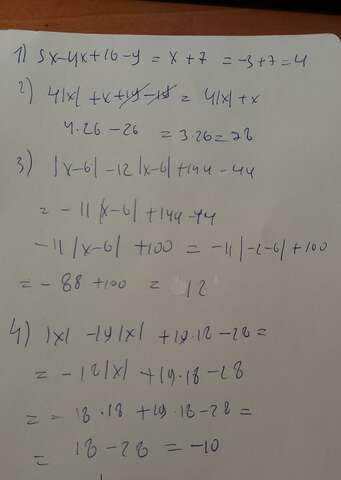 1) 5x-4x+16-9 = x+7 = -3+7=4
2) 4|x| +x+19-19 = 4|x|+x
4·26-26 = 3·26=78
3) |x-6| -12|x-6|+144-44
= -11|x-6|+144-44
-11|x-6| +100 = -11|-2-6|+100
= -88+100 = 12
4) |x| -19|x| +19·18-28=
= -18|x| +19·18-28
= -18·18+19·18-28=
= 18-28 = -10